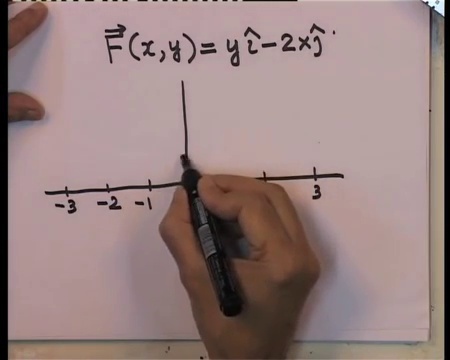 F⃗(x,y) = y î − 2x ĵ
-3 -2 -1 3